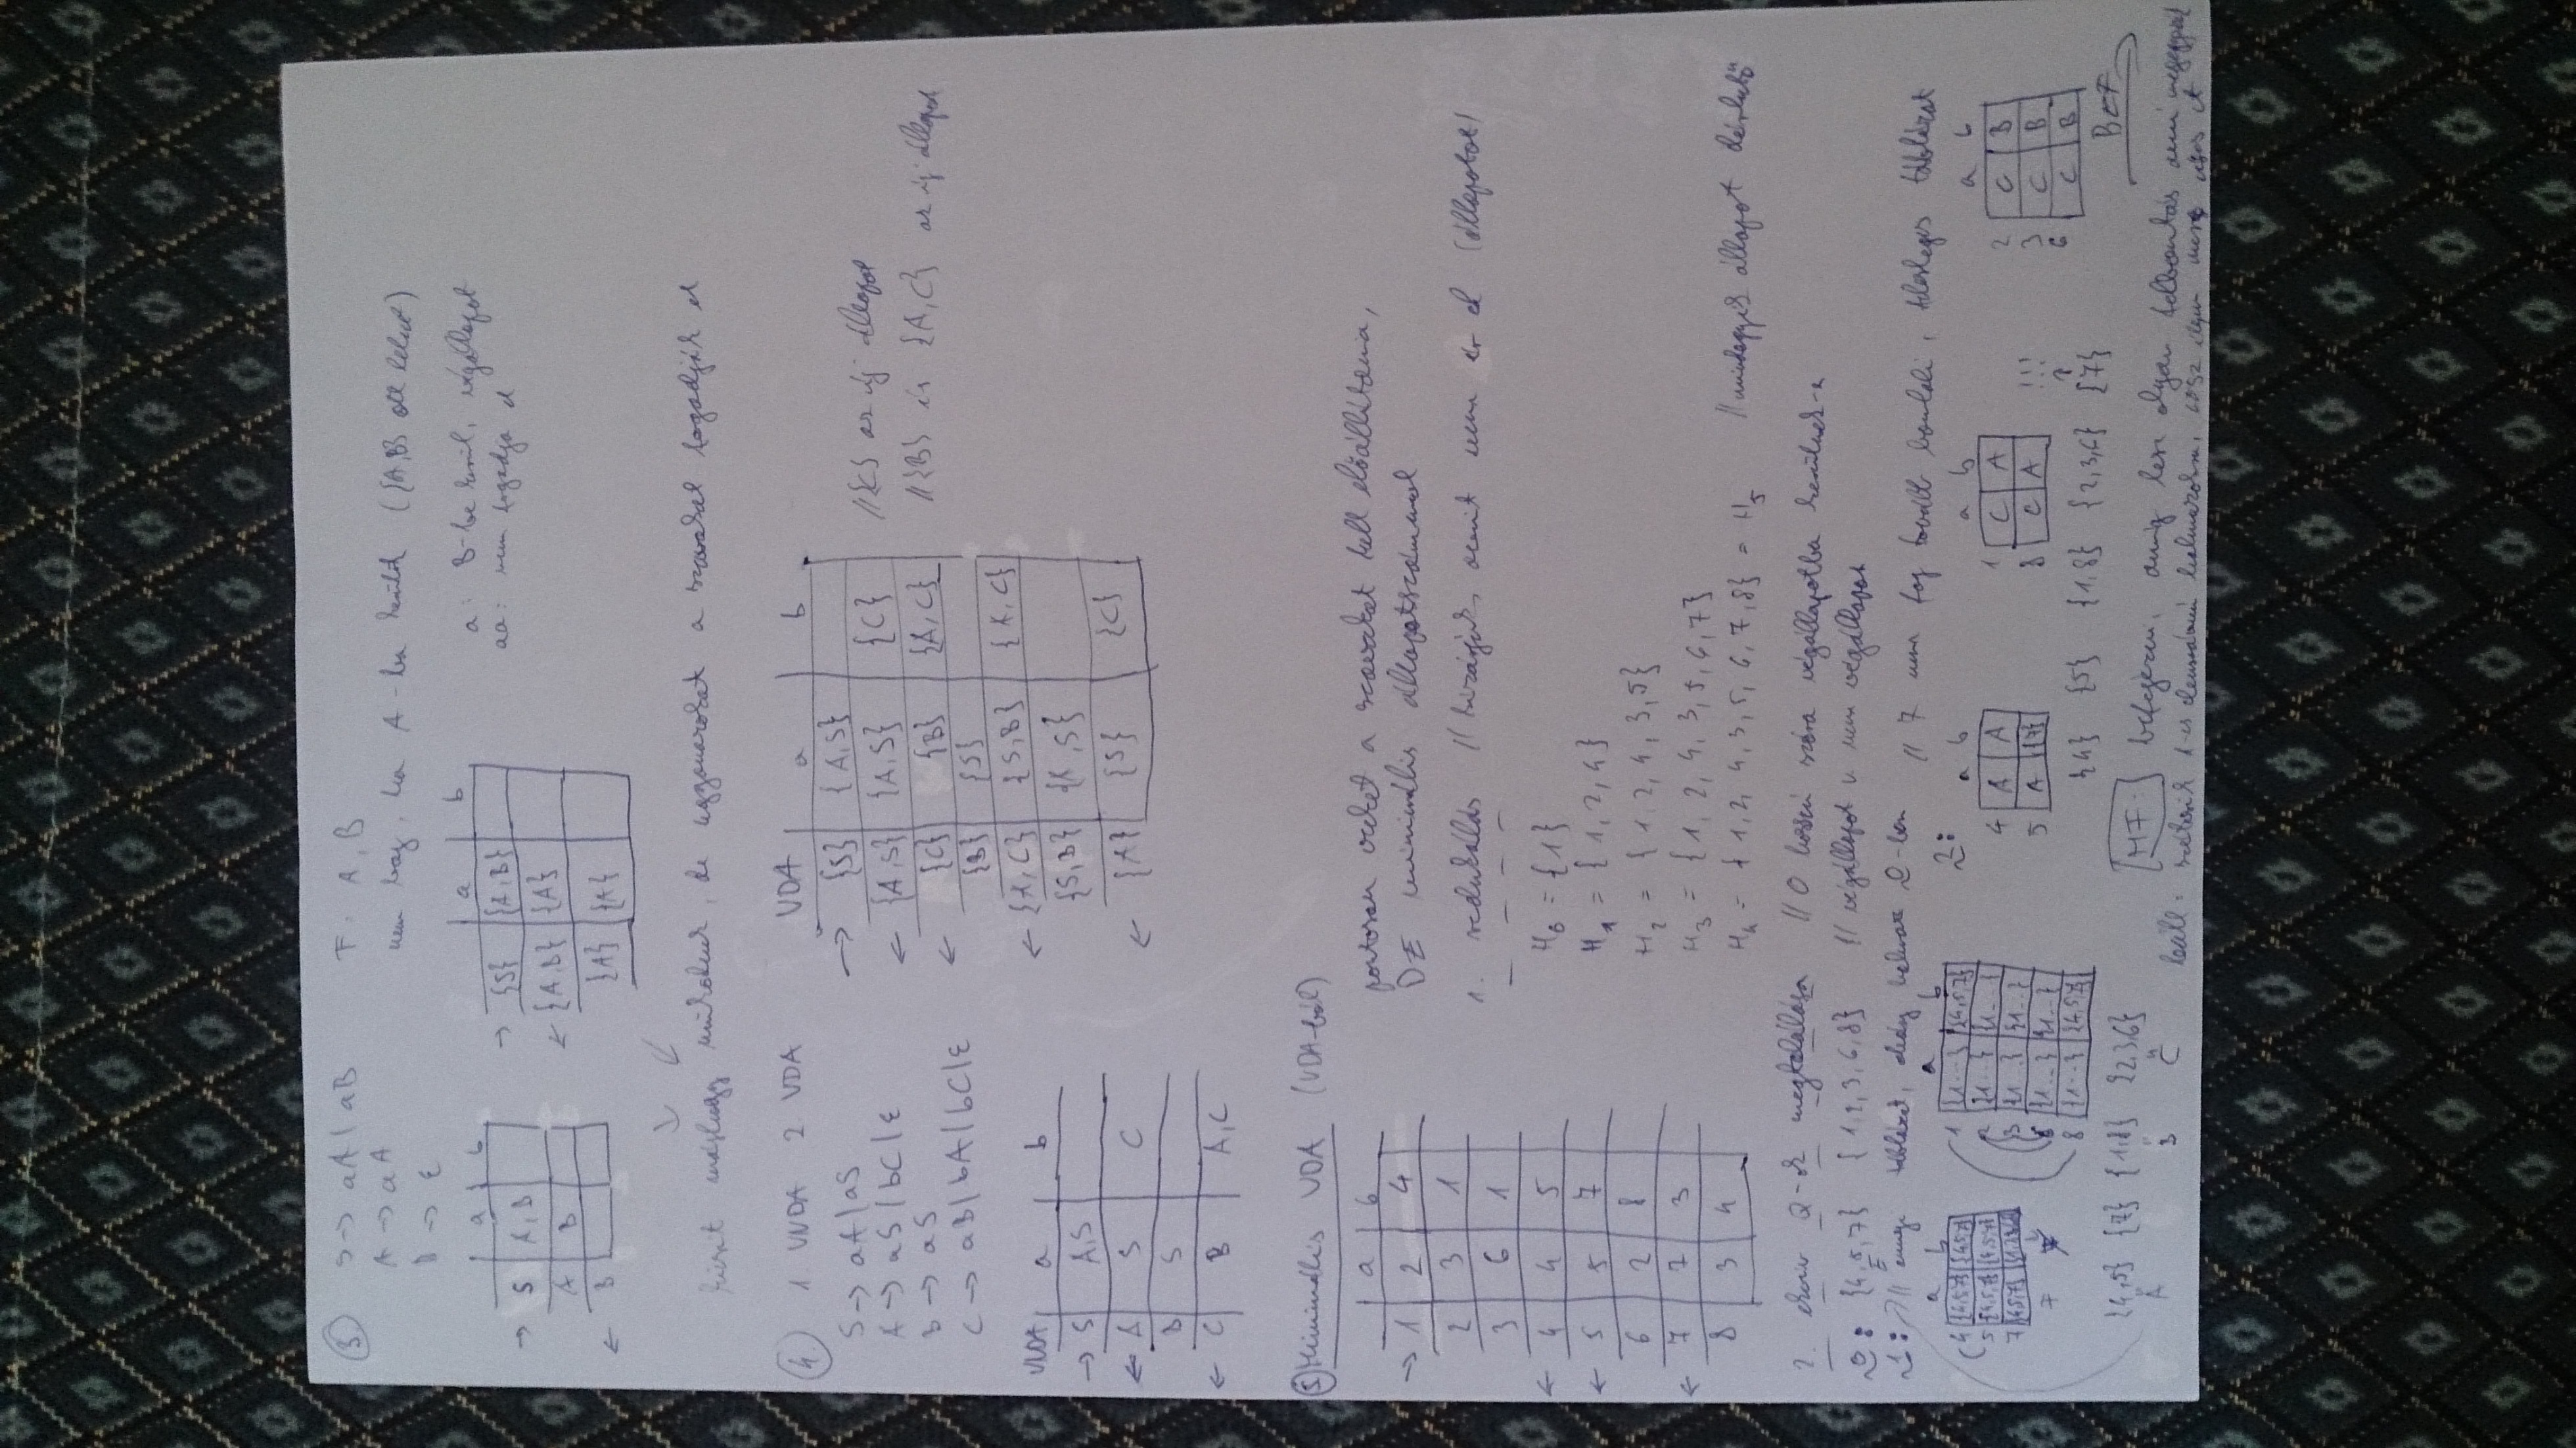 3. S → aA | aB   F: A, B
A → aA   nem baj, ha A-ba kerülök ({A,B} ott lehet)
B → ε
a b
→ S A, B
A B
← B
a b
→ {S} {A,B}
← {A,B} {A}
{A} {A}
a: B-be kerül, végállapot
aa: nem fogadja el
kicsit máshogy működnek, de ugyanazokat a szavakat fogadják el
4. 1. VNDA 2. VDA
S → aA | aS
A → aS | bC | ε
B → aS
C → aB | bA | bC | ε
VNDA a b
→ S A,S
← A S C
B S
← C B A,C
VDA a b
→ {S} {A,S}
← {A,S} {A,S} {C} // {C} az új állapot
← {C} {B} {A,C} // {B} és {A,C} az új állapot
{B} {S}
← {A,C} {S,B} {A,C}
{S,B} {A,S}
← {A} {S} {C}
5. Minimális VDA (VDA-ból)
a b
→ 1 2 4
2 3 1
3 6 1
← 4 4 5
← 5 5 7
6 2 8
← 7 7 3
8 3 4
pontosan ezeket a szavakat kell előállítania,
DE minimális állapotszámmal
1. redukálás // kizárjuk, amit nem ér el (állapotot)
H0 = {1}
H1 = {1,2,4}
H2 = {1,2,4,3,5}
H3 = {1,2,4,3,5,6,7}
H4 = {1,2,4,3,5,6,7,8} = H5 // mindegyik állapot elérhető
2. ekviv Q-k megtalálása // 0 hosszú szóra végállapotba kerülnek-e
0: {4,5,7} {1,2,3,6,8} // végállapot v. nem végállapot
1: // annyi táblázat, ahány halmaz 0-ban // 7 nem fog tovább bomlani, felesleges táblázat
a b
4 {4,5,7} {4,5,7}
5 {4,5,7} {4,5,7}
7 {4,5,7}
7
a b
1 {1...} {4,5,7}
2 {1...} {1...}
3 {1...} {1...}
6 {1...} {1...}
8 {1...} {4,5,7}
{4,5} {7} {1,8} {2,3,6}
A B C
2:
a b
4 A A
5 A {7}
a b
1 C A
8 C A
!!!
a b
2 C B
3 C B
6 C B
{4} {5} {1,8} {2,3,6} {7}
HF: befejezni, amíg lesz olyan felbontás ami megegyezik